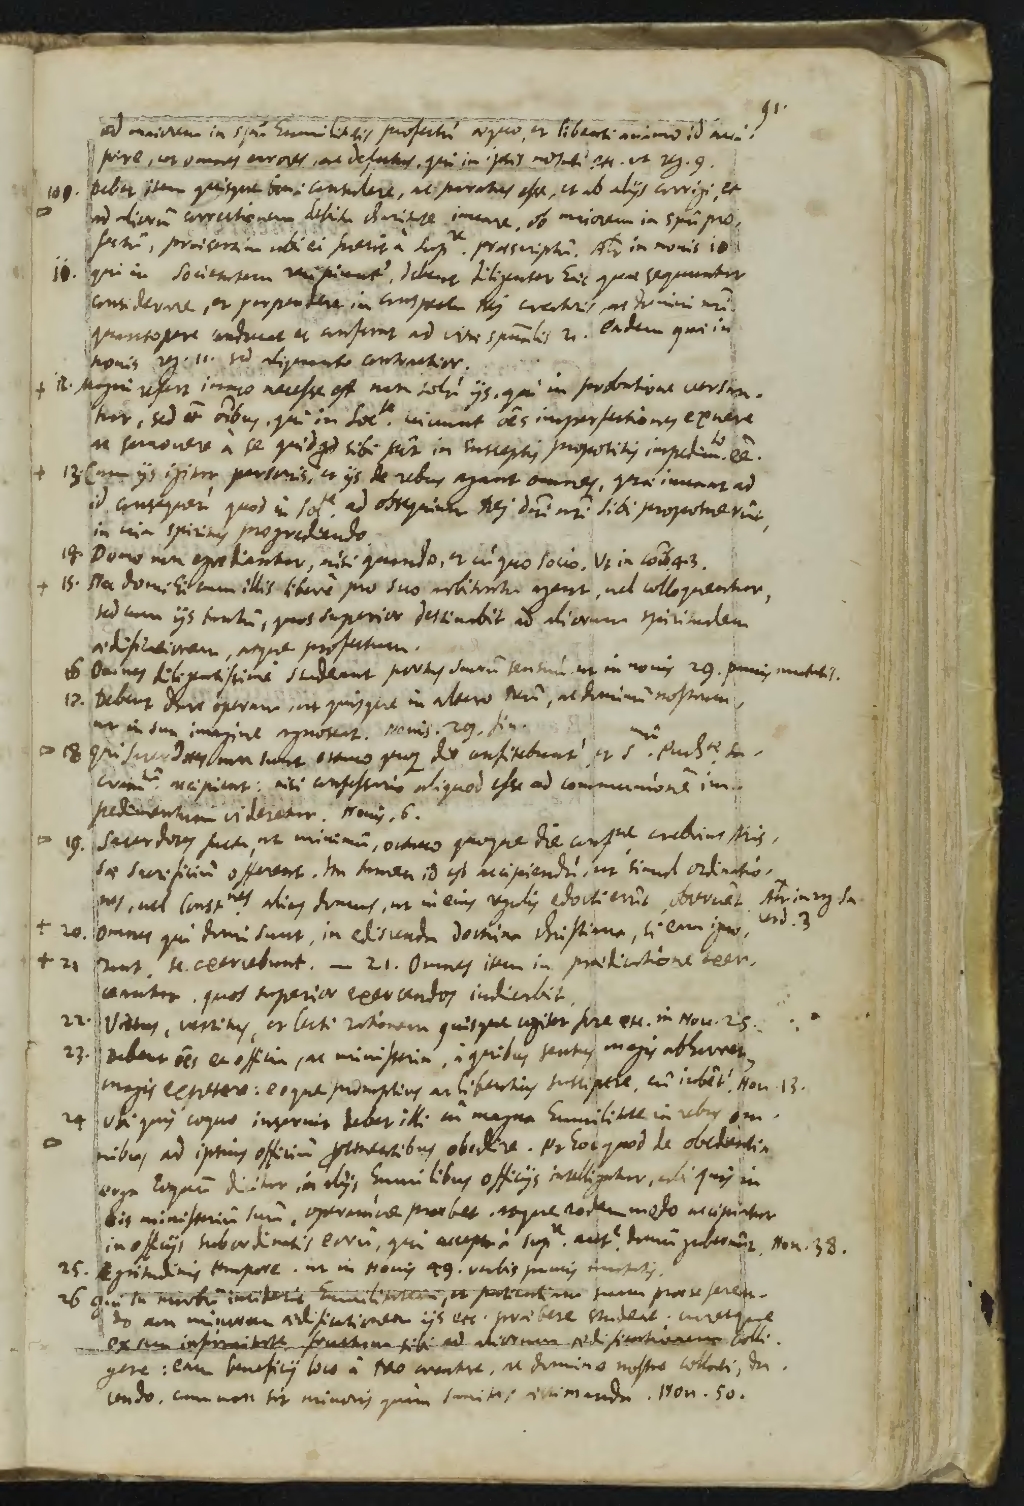 91.
ad maiorem in spũ humilitatis profectũ atque, et libenti animo id acci-
pere, ut omnes errores, ac defectus, qui in ipsis notati etc. ut reg. 9.
109. Debet item quisque boni consulere, ac paratus esse, ut ab alijs corrigi, et
ad aliorũ correctionem debita charitate iuvare, ob maiorem in spũ pro-
fectũ, praesertim ubi ei fuerit à Sup.re praescriptũ. in novis 10
10. qui in Societatem recipiunt', debent diligenter hic quae sequuntur
considerare, et perpendere in conspectu Dei creatoris, ac domini nri.
quantopere conducat et conferat ad vitae spũalis etc. eadem qui in
novis reg. 11. sed aliquanto contractior.
+ 12. Magni refert immo necesse est non solũ ijs, qui in probatione versan-
tur, sed et õibus, qui in Soc.te vivunt oẽs imperfectiones exuere
ac semovere à se quidquid sibi sit in susceptis propositis impedim.to eẽ.
+ 13. Cum ijs igitur personis, et ijs de rebus agant omnes, quae iuvant ad
id consequen' quod in Soc.te ad obsequium Dei dñi nri sibi proposuerũt,
in via spiritus progrediendo
14. Domo non egrediantur, nisi quando, et cũ quo socio. Ut in 43.
+ 15. Nec domi hi cum illis liberè pro suo arbitratu agent, vel colloquentur,
sed cum ijs tantũ, quos superior destinabit ad aliorum spiritualem
aedificationem, atque profectum.
16 Omnes diligentissime studeant portas suorũ sensuũ ut in novis 29. paucis mutatis.
17. Debent dare operam, ut quisque in altero Deũ, ac dominũ nostrum,
ut in sua imagine agnoscat. Novis. 29. fin.
18 qui sacerdotes non sunt octavo quoq die confitebunt', et S.mũ Euch.ae Sa-
cram.tũ recipient: nisi confessario aliquod esse ad communionẽ im-
pedimentum videretur. Novis. 6.
19. Sacerdotes facti, ut minimũ, octavo quoque die conf. crebrius Mis-
sae sacrificiũ offerent. tamen id est accipiendũ, ut simul ordinatio-
nes, vel Const.nes alias domus, ut in eius regulis edocti erũt, observẽt in reg Sa
cerd. 3
+ 20. omnes qui domi sunt, in ediscenda doctrina christiana, si eam igno-
+ 21 rant, se exercebunt. — 21. Omnes item in praedicatione exer-
ceantur, quos superior exercendos iudicabit.
22. Victus, vestitus, et lecti rationem quisque cogitet fore etc. in Nov. 25.
23. Debent oẽs ea officia, ac ministeria, à quibus sensus magis abhorret,
magis expetere: eoque promptius ac libentius suscipere, cũ iubẽt'. Nov. 13.
24 Ubi quis coquo inservit debet illi cũ magna humilitate in rebus om-
nibus ad ipsius officiũ spectantibus obedire. Et hoc quod de obedientia
erga coquũ dicitur, in alijs humilibus officijs intelligatur, ubi quis in
his ministeriũ suũ, operamve praebet. atque eodem modo accipiatur
in officijs subordinatis eorũ, qui accepta à Sup.re aut.te domũ gubernãt. Nov. 38.
25. Egritudinis tempore. ut in Novis 49. verbis paucis mutatis.
26 qui in morbũ inciderit humilitatem, et patientiam suam prae se feren-
do non minorem aedificationem ijs etc. praebere studeat. curetque
ex sua infirmitate fructum sibi ad aliorum aedificationem colli-
gere: eam beneficij loco à Deo creatore, ac domino nostro collati, du-
cendo. cum non sit minoris quàm sanitas aestimanda. Nov. 50.